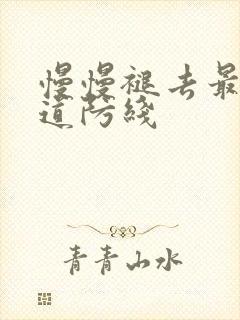 慢慢褪去最
道防线
青青山水